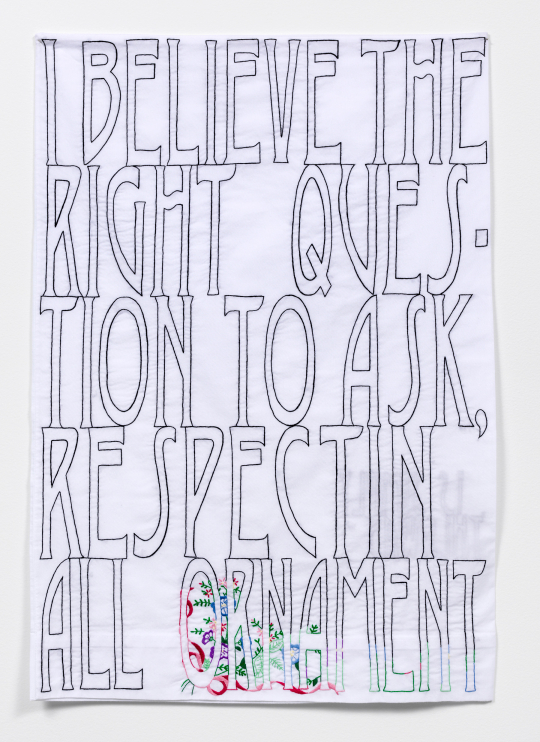 I BELIEVE THE
RIGHT QUES-
TION TO ASK,
RESPECTIN
ALL ORNAMENT